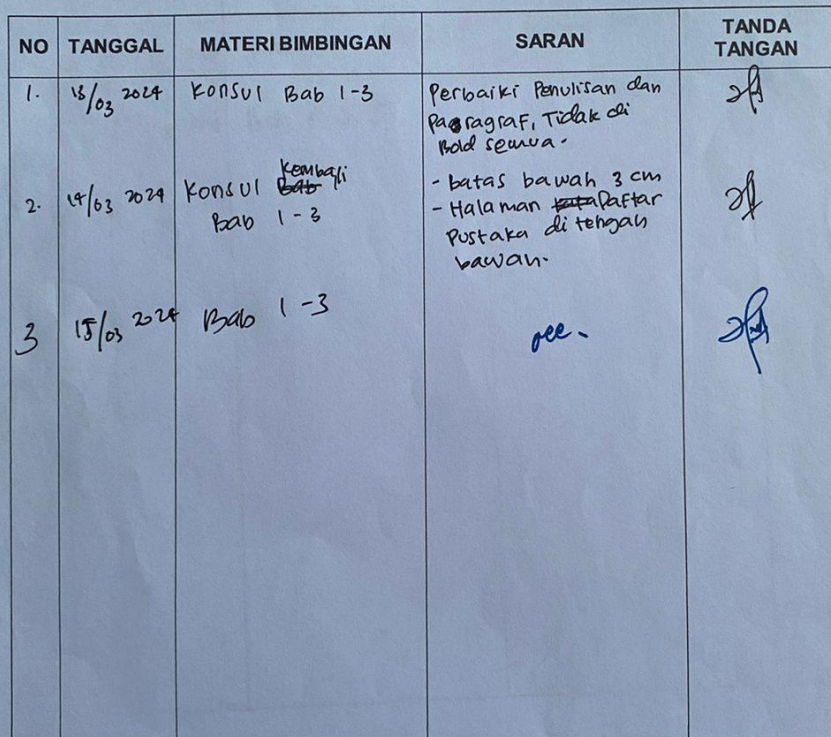 NO TANGGAL MATERI BIMBINGAN SARAN TANDA TANGAN
1. 13/03 2024 Konsul Bab 1-3 Perbaiki Penulisan dan
Paragraf, Tidak di
Bold semua.
2. 14/03 2024 Konsul Kembali
Bab 1-3
- batas bawah 3 cm
- Halaman Daftar
Pustaka di tengah
bawah.
3 15/03 2024 Bab 1-3